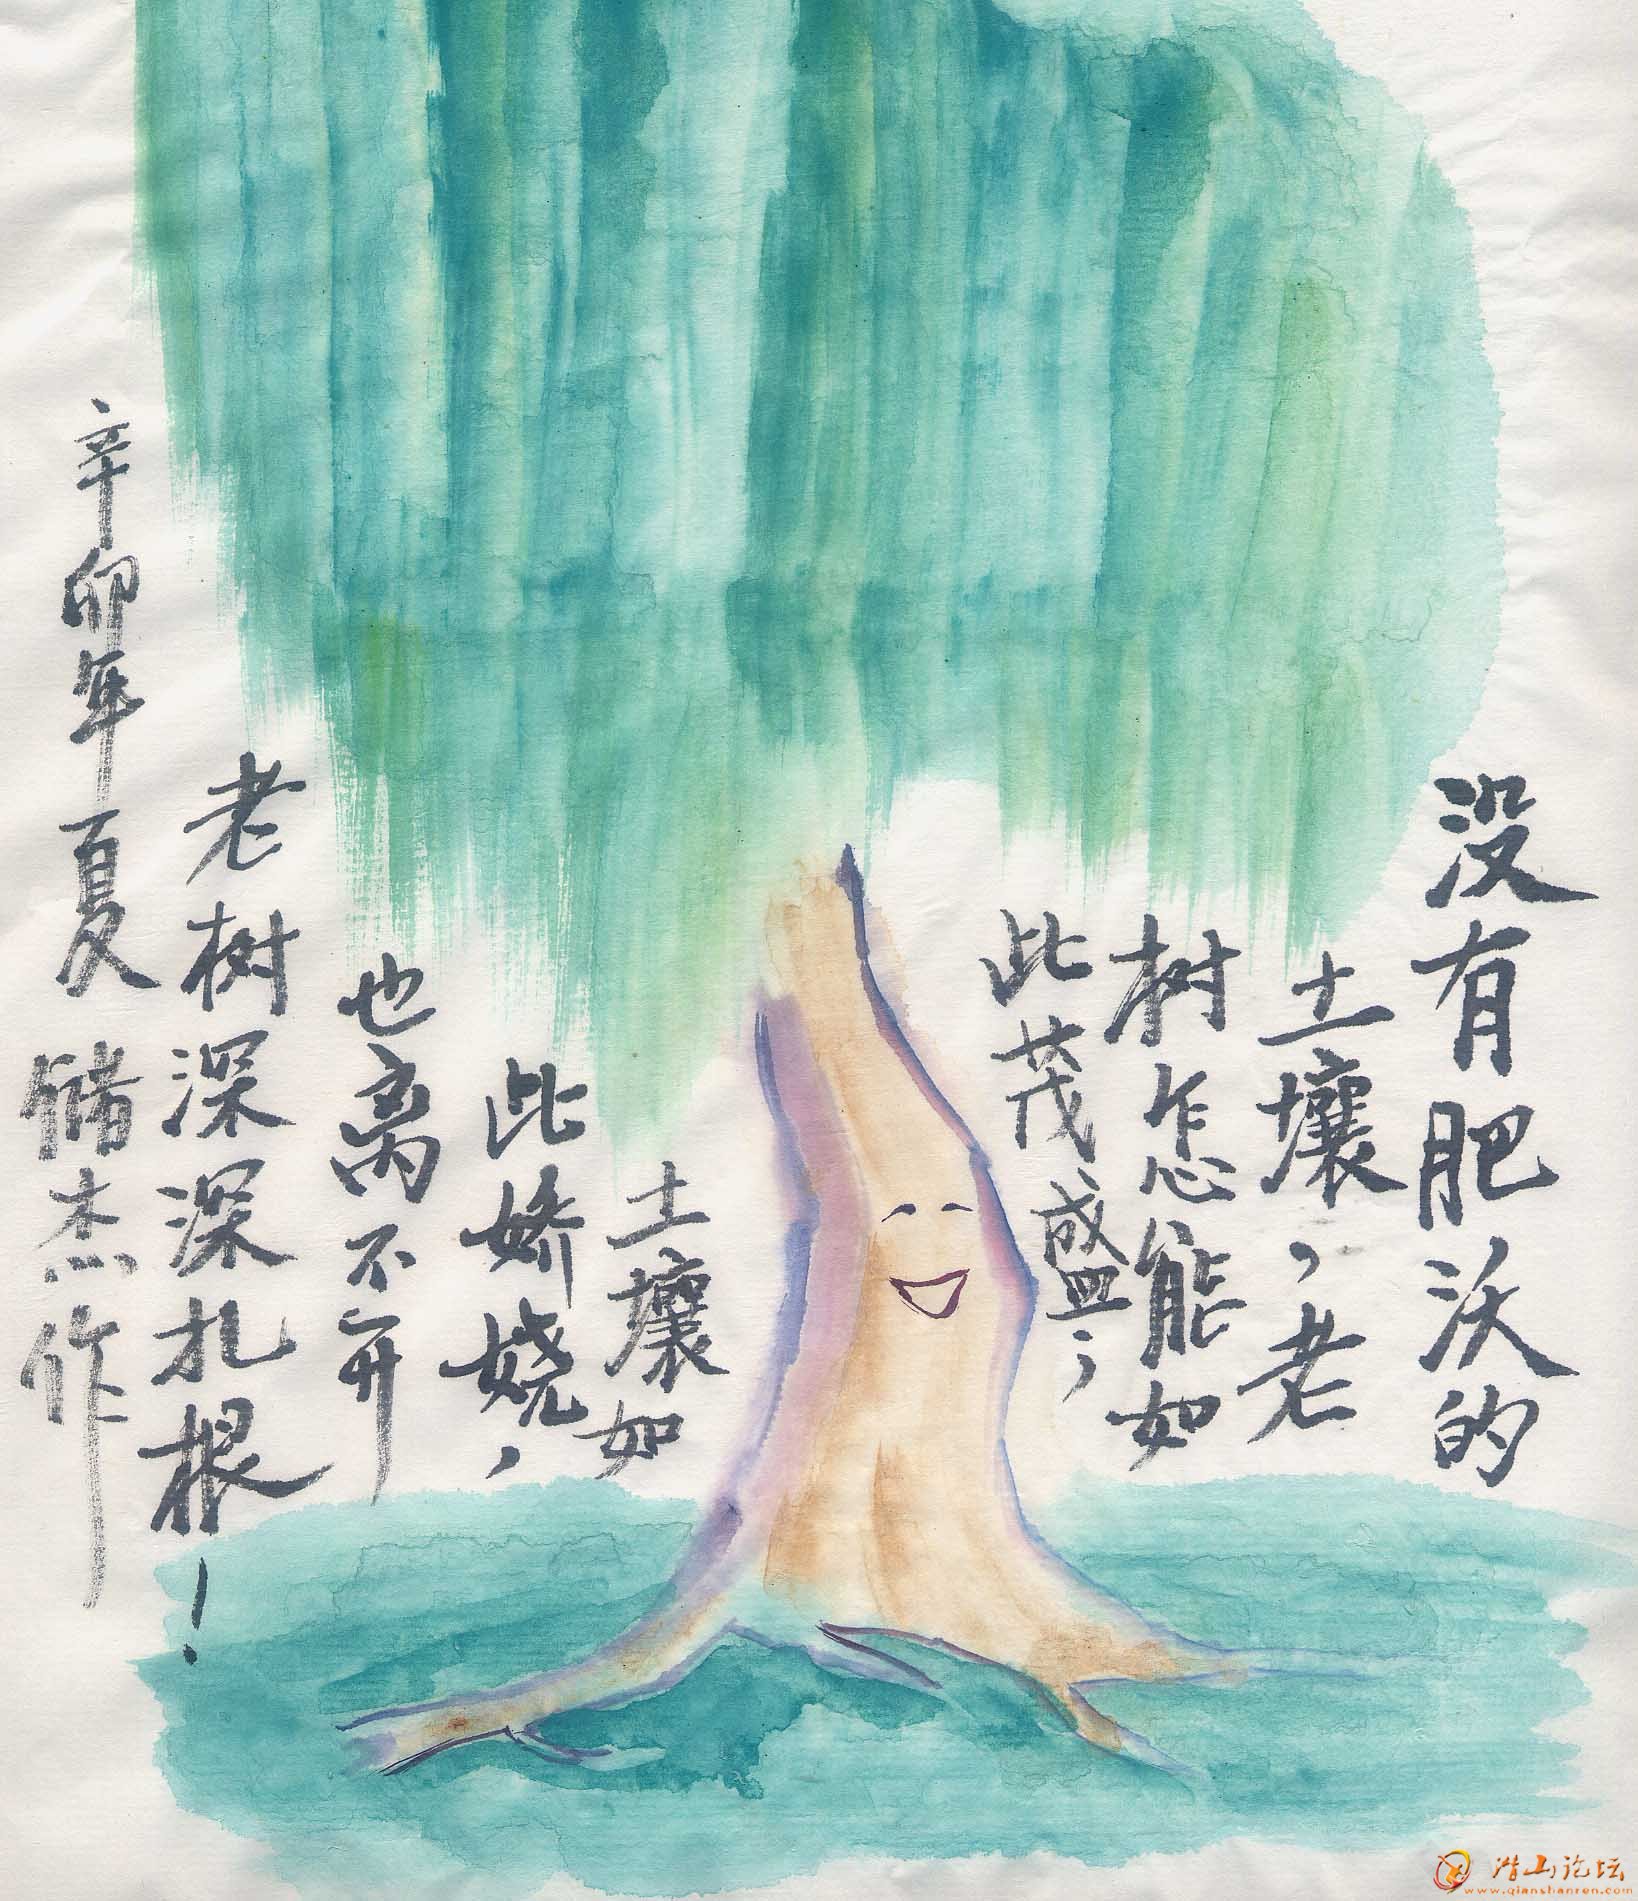 没有肥沃的
土壤，老
树怎能如
此茂盛；
土壤如
此娇娆，
也离不开
老树深深扎根！
辛卯年夏 储杰作
潜山论坛
www.qianshanren.com